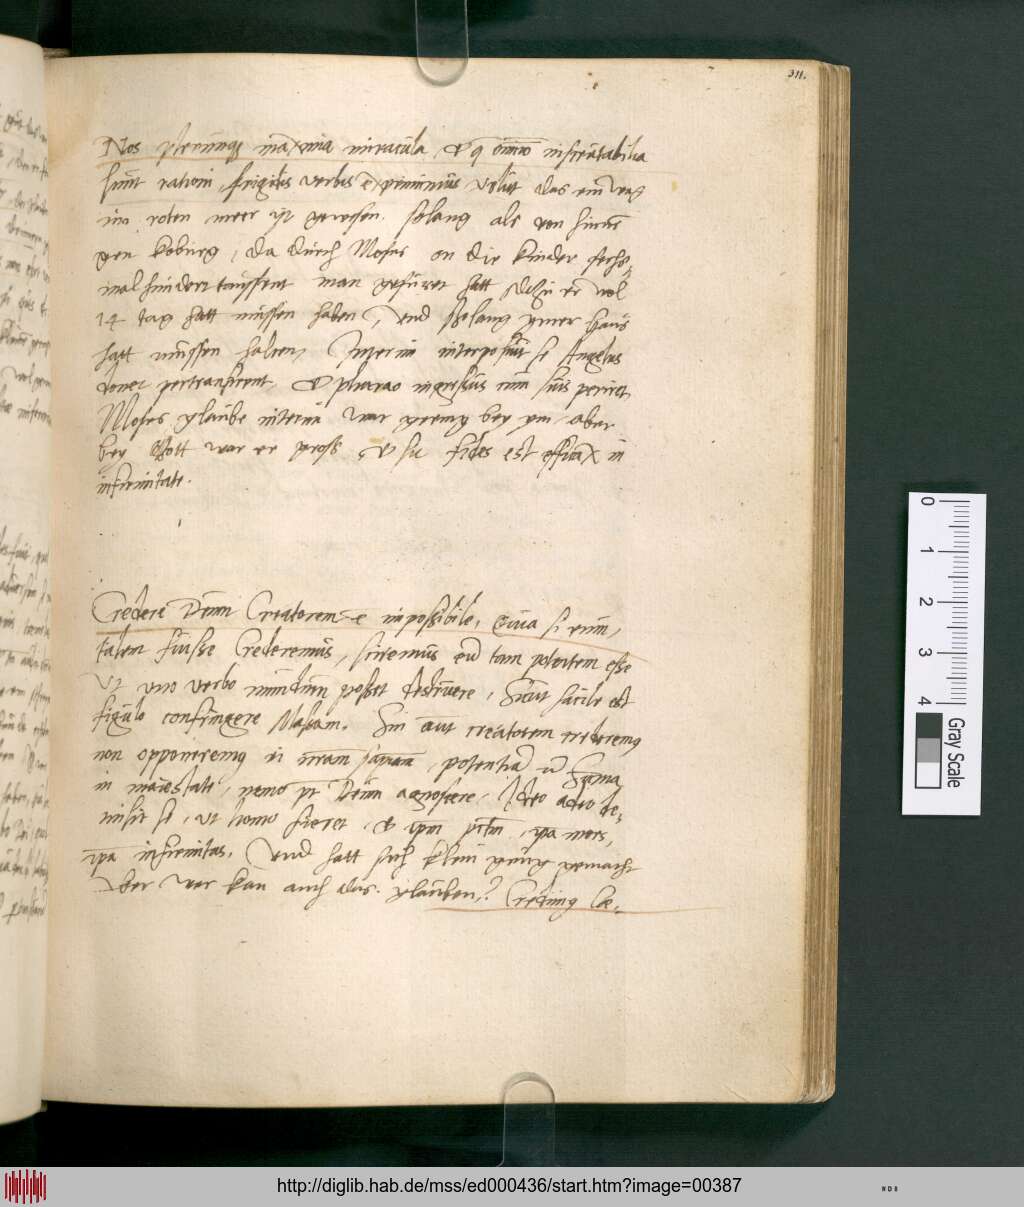 311.
Nos plerumq maxima miracula, et q omnino inscrutabilia
sunt rationi, frigidis verbis exprimimus, velut das ein weg
im roten meer ist gewesen. so lang als von hinne
gen Koburg, da durch Moses on die kinder sechs
mal hundert taussent man gefüret hatt, dazu er wol
14 tag hatt mussen haben, und so lang ymer hauss
hatt mussen halten, Interim interposuit se Angelus
donec pertransirent, et pharao ingressus cum suis periret,
Moses glaube interim war gering bey ym, aber
bey Gott war er gross, et sic fides est efficax in
infirmitate.
Credere Deum Creatorem e impossibile, Quia si enim,
talem fuisse Crederemus, sciremus eu tam potentem esse
Ut uno verbo mundum posset destruere, Sicut facile est
figulo confringere Massam. Sin aut creatorem crederemq
non opponeremq ei nram sapiam, potentia Summa
in maiestate, nemo pt Deum agnoscere, Ideo adeo de-
misit se, ut homo fieret, et ipm pctm, ipa mors,
ipa infirmitas. Und hatt sich klein gnug gemacht
Aber wer kan auch das glauben? Credimq
http://diglib.hab.de/mss/ed000436/start.htm?image=00387
0
1
2
3
4
Gray Scale